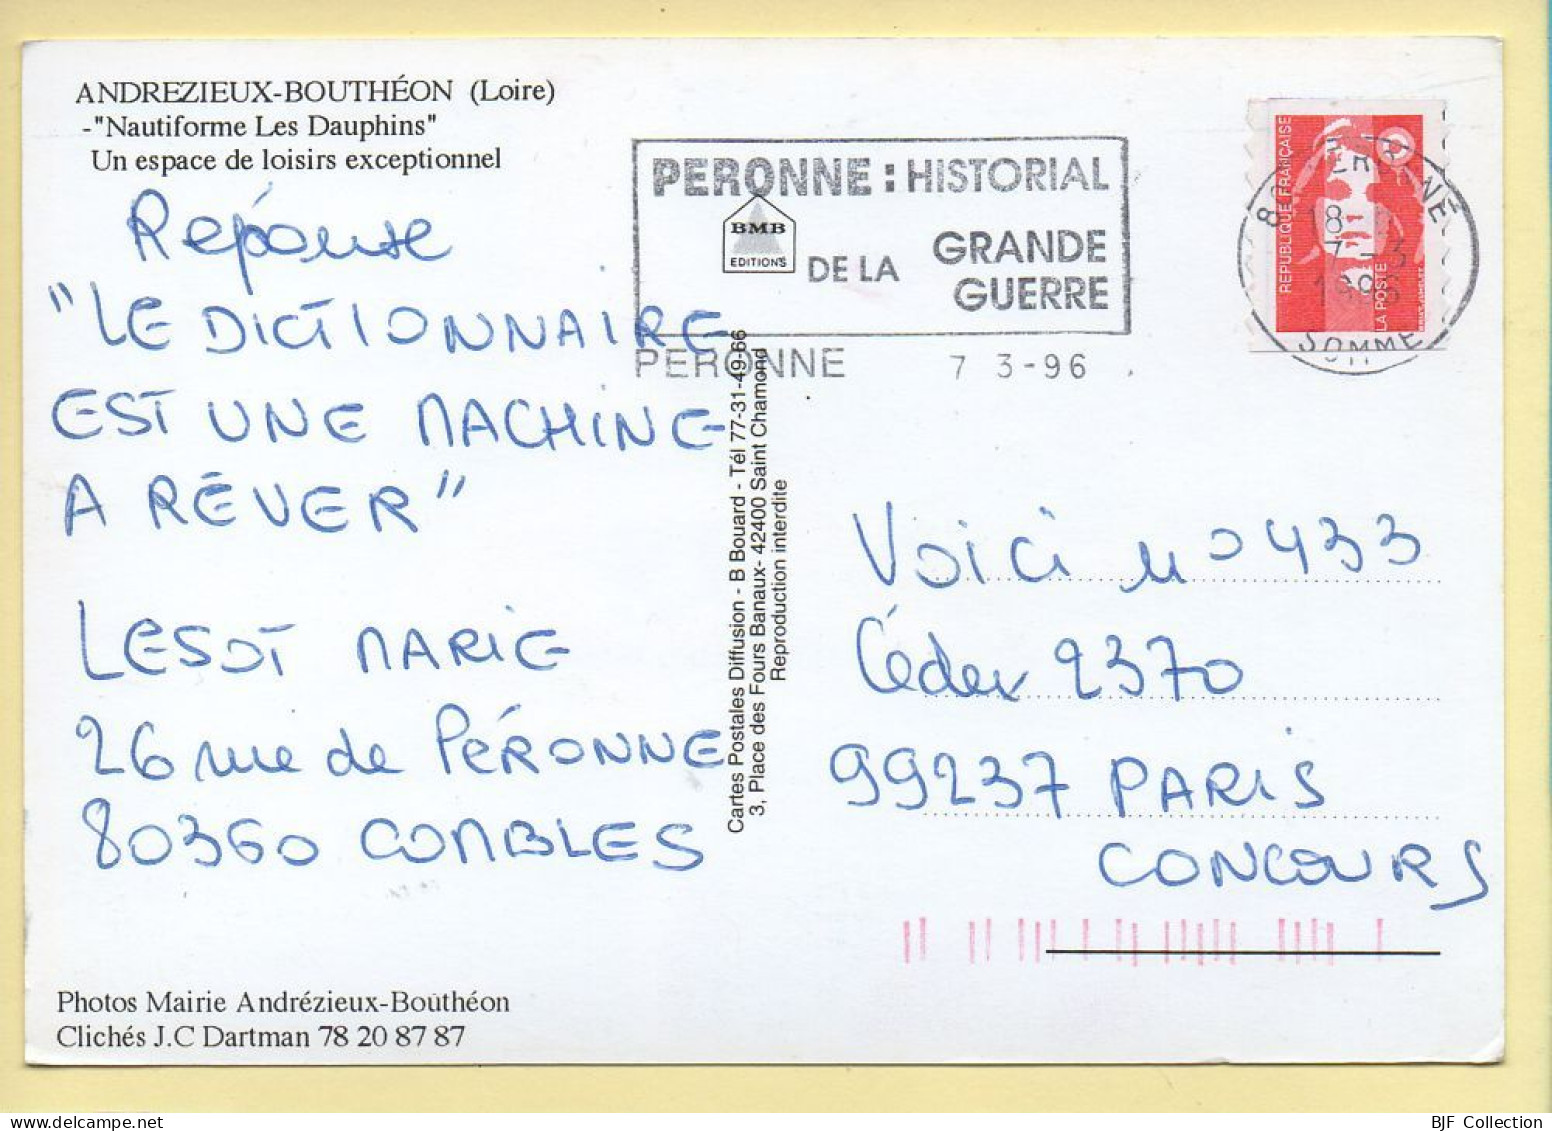 ANDREZIEUX-BOUTHÉON (Loire)
-"Nautiforme Les Dauphins"
Un espace de loisirs exceptionnel
Réponse
"LE DICTIONNAIRE
EST UNE MACHINE
A RÊVER"
LESOT MARIE
26 rue de PÉRONNE
80360 COMBLES
Photos Mairie Andrézieux-Boùthéon
Clichés J.C Dartman 78 20 87 87
PERONNE : HISTORIAL
BMB
EDITIONS
DE LA GRANDE
GUERRE
PERONNE 7 3-96
Cartes Postales Diffusion - B Bouard - Tél 77-31-49-66
3, Place des Fours Banaux- 42400 Saint Chamond
Reproduction interdite
REPUBLIQUE FRANÇAISE
LA POSTE
PERONNE
18
7-3
1996
SOMME
Voici no 433
Cédex 2370
99237 PARIS
CONCOURS
BJF Collection